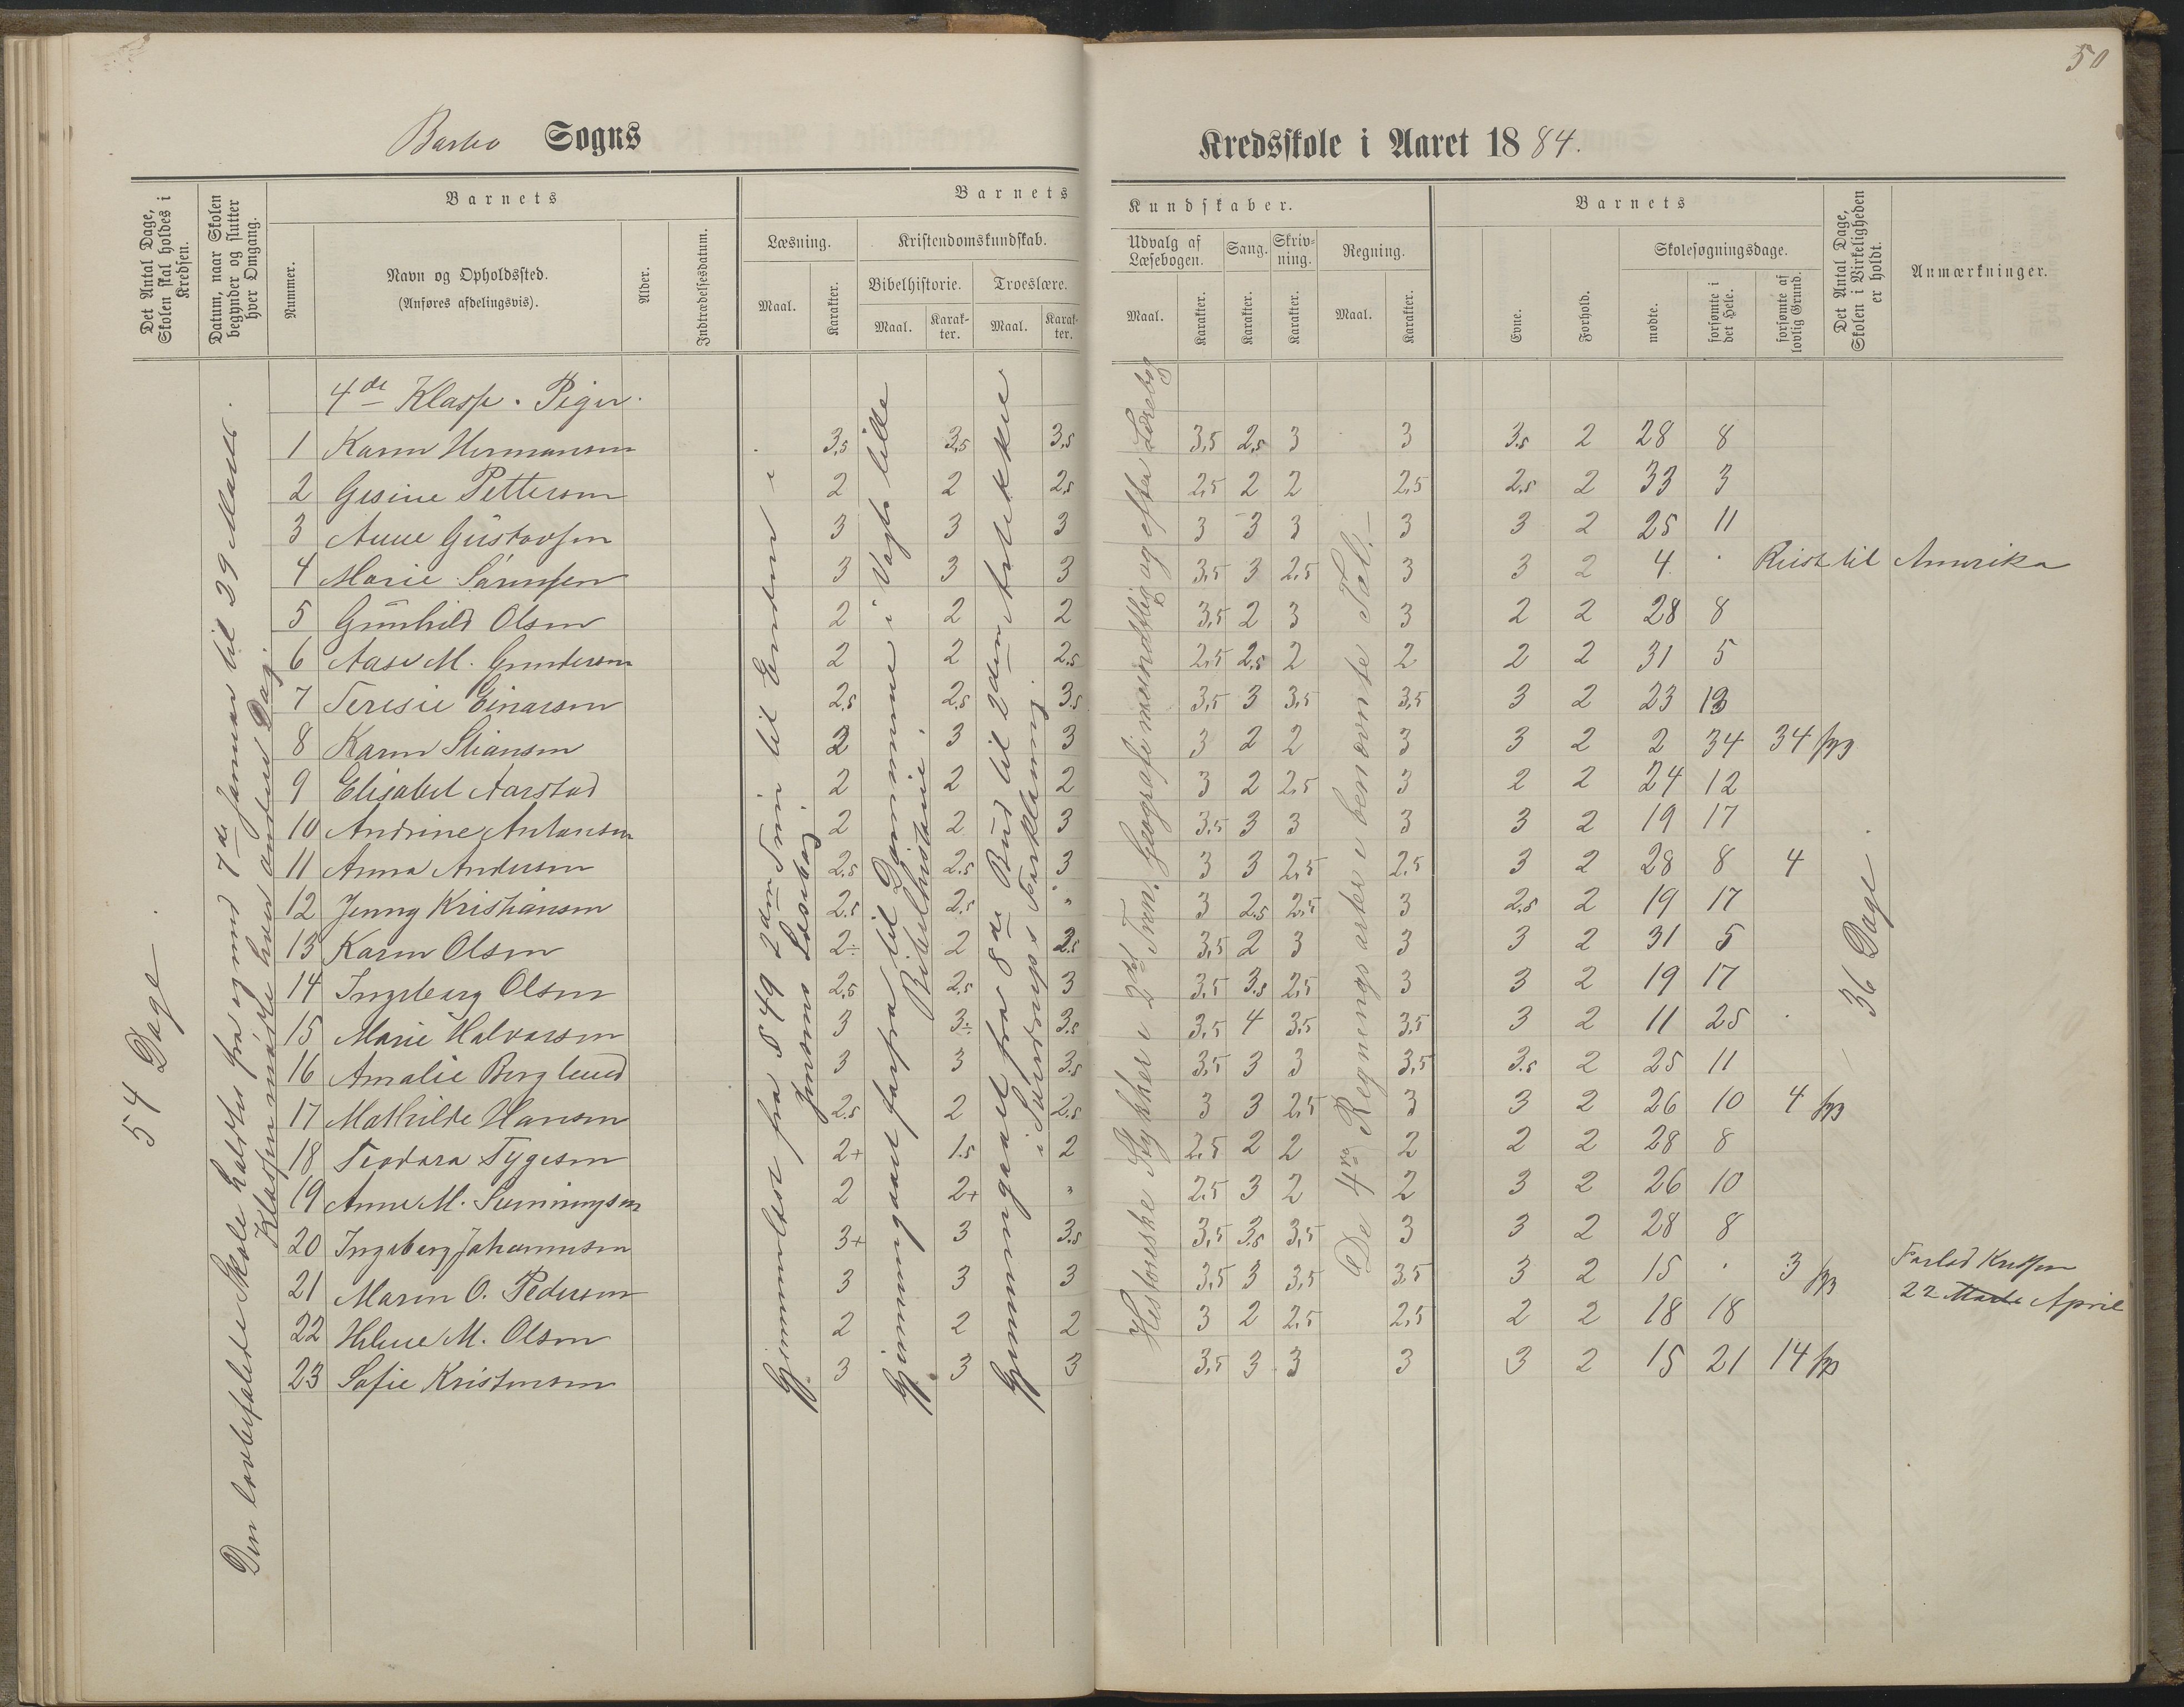 50
Barbo Sogns
Kredsskole i Aaret 1884.
Det Antal Dage, Skolen skal holdes i Kredsen.
Datum, naar Skolen begynder og slutter hver Omgang.
Barnets
Nummer.
Navn og Opholdssted.
(Anføres afdelingsvis).
Alder.
Indtrædelsesdatum.
Barnets
Læsning.
Kristendomskundskab.
Maal.
Karakter.
Bibelhistorie.
Troeslære.
Maal.
Karakter.
Maal.
Karakter.
Kundskaber.
Udvalg af Læsebogen.
Sang.
Skrivning.
Regning.
Maal.
Karakter.
Karakter.
Karakter.
Maal.
Karakter.
Barnets
Evne.
Forhold.
Skolesøgningsdage.
mødte.
forsømte i det Hele.
forsømte af lovlig Grund.
Det Antal Dage, Skolen i Virkeligheden er holdt.
Anmærkninger.
54 Dage.
Den lovbefalede Skole holdtes fra og med 7de Januar til 29 Marts.
Klassen mødte hver anden Dag.
Gjennemlæst fra § 49 2den Trin til Enden i
Jensens Læsebog
Gjennemgaaet forfra til Dommerne i Vogts lille
Bibelhistorie.
Gjennemgaaet fra 8de Bud til 2den Artikkel
i Sverdrups Forklaring.
Historiske Stykker i 2det Trin. Geografi mundtlig og efter Læsebog
De 4re Regningsarter i benævnte Tal.
36 Dage.
4de Klasse. Piger.
1 Karen Hermansen 3,5 3,5 3,5 3,5 2,5 3 3 3,5 2 28 8
2 Gesine Pettersen 2 2 2,5 2,5 2 2 2,5 2,5 2 33 3
3 Anne Gustavsen 3 3 3 3 3 3 3 3 2 25 11
4 Marie Sørensen 3 3 3 3,5 3 2,5 3 3 2 4 . Reist til Amerika
5 Gunhild Olsen 2 2 2 3,5 2 3 3 2 2 28 8
6 Aase M. Gundersen 2 2 2,5 2,5 2,5 2 2 2 2 31 5
7 Teresie Einarsen 2,5 2,5 3,5 3,5 3 3,5 3,5 3 2 23 13
8 Karen Stiansen 2 3 3 3 2 2 3 3 2 2 34 34
9 Elisabet Aarstad 2 2 2 3 2 2,5 3 2 2 24 12
10 Andrine Antonsen 2 2 3 3,5 3 3 3 3 2 19 17
11 Anna Andersen 2,5 2,5 3 3 3 2,5 2,5 3 2 28 8 4
12 Jenny Kristiansen 2,5 2,5 " 3 2,5 2,5 3 2,5 2 19 17
13 Karen Olsen 2÷ 2 2,5 3,5 2 3 3 3 2 31 5
14 Ingeborg Olsen 2,5 2,5 3 3,5 3,5 2,5 3 3 2 19 17
15 Marie Halvorsen 3 3÷ 3,5 3,5 4 3,5 3,5 3 2 11 25
16 Amalie Berglund 3 3 3,5 3,5 3 3 3,5 3,5 2 25 11
17 Mathilde Hansen 2,5 2 2,5 3 3 2,5 3 3 2 26 10 4
18 Teodora Tygesen 2+ 1,5 2 2,5 2 2 2 2 2 28 8
19 Anne M. 2 2+ " 2,5 3 2 2 3 2 26 10
20 Ingeborg Johannesen 3+ 3 3,5 3,5 3,5 3,5 3 3 2 28 8
21 Maren O. Pedersen 3 3 3 3,5 3 3,5 3,5 3 2 15 . 3 Forlod Kredsen
22 Marts April
22 Helene M. Olsen 2 2 2 3 2 2,5 2,5 2 2 18 18
23 Sofie Kristensen 3 3 3 3,5 3 3 3 3 2 15 21 14